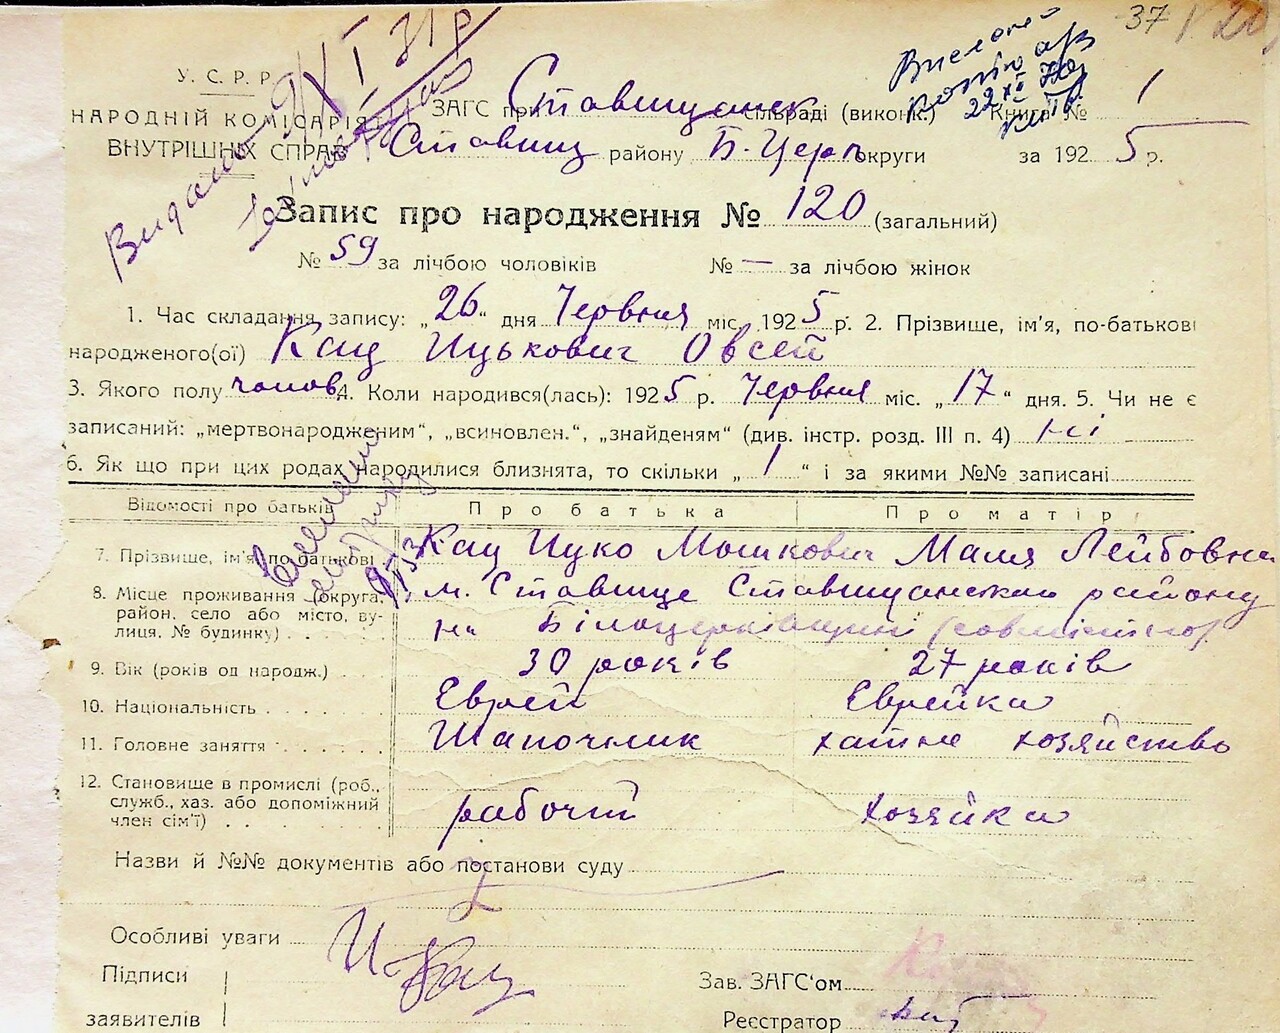 37
У. С. Р. Р.
НАРОДНІЙ КОМІСАРІЯТ
ВНУТРІШНІХ СПРАВ
ЗАГС при Ставищанск сільраді (виконк.) Книга № 1
Ставищ району Б-Церк округи за 1925 р.
Запис про народження № 120 (загальний)
№ 59 за лічбою чоловіків № — за лічбою жінок
1. Час складання запису: „26“ дня Червня міс. 1925 р. 2. Прізвище, ім'я, по-батькові
народженого(ої) Кац Ицькович Овсей
3. Якого полу чолов 4. Коли народився(лась): 1925 р. Червня міс. „17“ дня. 5. Чи не є
записаний: „мертвонародженим“, „всиновлен.“, „знайденям“ (див. інстр. розд. III п. 4) ні
6. Як що при цих родах народилися близнята, то скільки „1“ і за якими №№ записані
Відомості про батьків Про батька Про матір
7. Прізвище, ім'я, по-батькові Кац Ицко Мошкович Маля Лейбовна
8. Місце проживання (округа, район, село або місто, вулиця, № будинку) м. Ставище Ставищанского району
на Білоцерківщині
9. Вік (років од народж.) 30 років 27 років
10. Національність Еврей Еврейка
11. Головне заняття Шапочник хатне хозяйство
12. Становище в промислі (роб., служб., хаз. або допоміжний член сім'ї) рабочий хозяйка
Назви й №№ документів або постанови суду
Особливі уваги
Підписи
заявителів
И Кац
Зав. ЗАГС'ом
Реєстратор